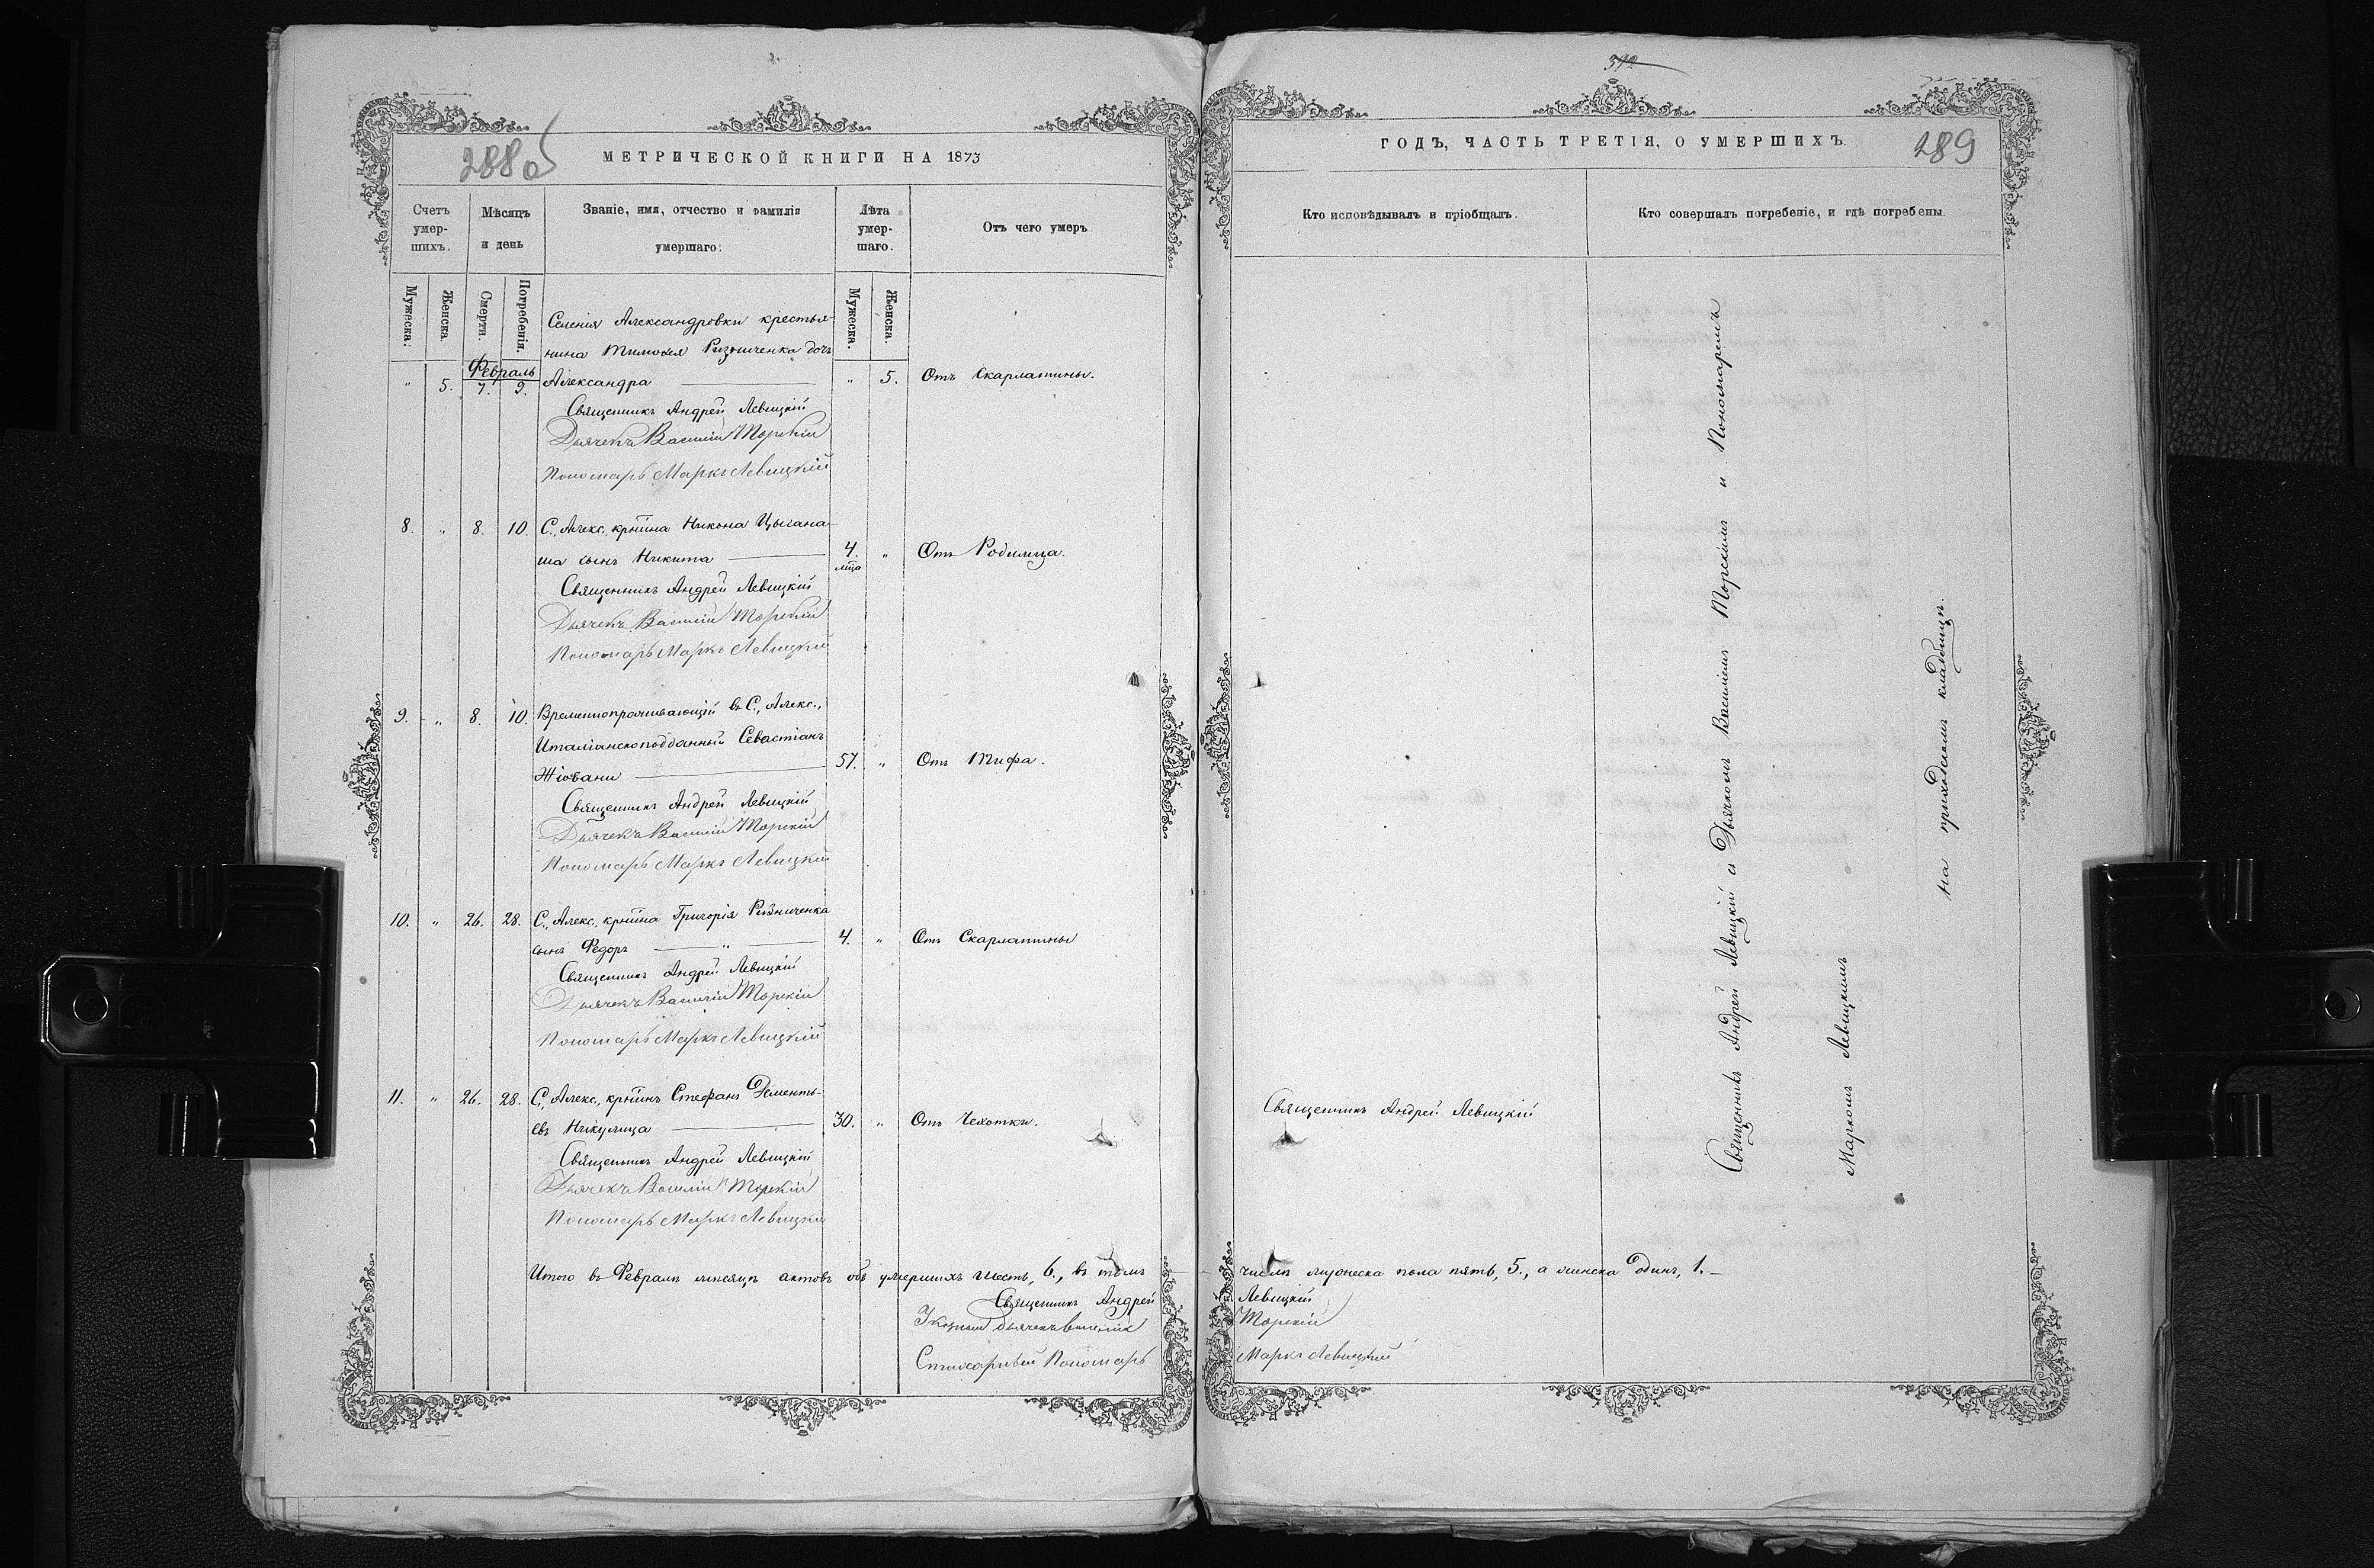 288об
МЕТРИЧЕСКОЙ КНИГИ НА 1873
Счетъ умер-шихъ.
Мѣсяцъ и день
Званіе, имя, отчество и фамилія умершаго.
Лѣта умер-шаго.
Отъ чего умеръ
Мужеска.
Женска.
Смерти.
Погребенія.
Мужеска.
Женска.
Селенія Александровки крестья-
нина Тимоѳея Ризниченка дочь
Февраль
" 5. 7. 9. Александра " 5. Отъ Скарлатины.
Священникъ Андрей Левицкій
Дьячекъ Василій Торскій
Пономарь Маркъ Левицкій
8. " 8. 10. С., Алекс., крт҃ина Никона Цыгана-
ша сынъ Никита 4. мц҃а " Отъ Родимца.
Священникъ Андрей Левицкій
Дьячекъ Василій Торскій
Пономарь Маркъ Левицкій
9. " 8. 10. Временнопроживающій въ С., Алекс.,
Италіанскоподданный Севастіанъ
Жіовани 57. " Отъ Тифа.
Священникъ Андрей Левицкій
Дьячекъ Василій Торскій
Пономарь Маркъ Левицкій
10. " 26. 28. С., Алекс., крт҃ина Григорія Ризниченка
сынъ Федоръ " 4. " Отъ Скарлатины
Священникъ Андрей Левицкій
Дьячекъ Василій Торскій
Пономарь Маркъ Левицкій
11. " 26. 28. С., Алекс., крт҃инъ Стефанъ Дементь-
евъ Никулица 30. " Отъ Чехотки.
Священникъ Андрей Левицкій
Дьячекъ Василій Торскій
Пономарь Маркъ Левицкій
Итого въ Февралѣ мѣсяцѣ актовъ объ умершихъ шесть, 6., въ томъ
Священникъ Андрей
Указный дьячекъ Василій
Стихарный Пономарь
ГОДЪ, ЧАСТЬ ТРЕТІЯ, О УМЕРШИХЪ.
289
Кто исповѣдывалъ и пріобщалъ.
Кто совершалъ погребеніе, и гдѣ погребены
Священникъ Андрей Левицкій
Священникъ Андрей Левицкій съ Дьячкомъ Василіемъ Торскимъ и Пономаремъ
Маркомъ Левицкимъ
на приходскомъ кладбищѣ.
числѣ мужеска пола пять, 5., а женска одинъ, 1.
Левицкій
Торскій
Маркъ Левицкій